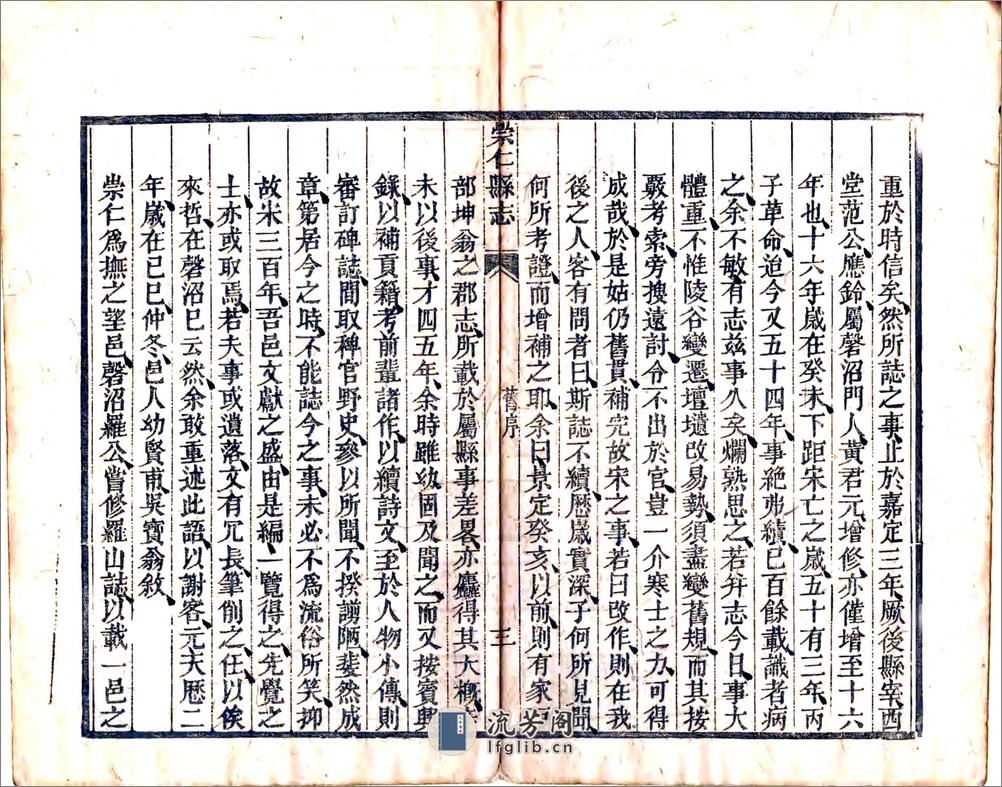 重於時信矣然所誌之事止於嘉定三年厥後縣宰西
堂范公應鈴屬磬沼門人黃君元增修亦僅增至十六
年也十六年歲在癸未下距宋亡之歲五十有三年丙
子革命迨今又五十四年事絶弗續已百餘載識者病
之余不敏有志兹事久矣爛熟思之若幷志今日事大
體重不惟陵谷變遷壇壝改易勢須盡變舊規而其按
覈考索旁搜遠討令不出於官豈一介寒士之力可得
成哉於是姑仍舊貫補完故宋之事若曰改作則在我
後之人客有問者曰斯誌不續歷歲實深子何所見聞
何所考證而增補之耶余曰景定癸亥以前則有家
崇仁縣志
舊序
三
部坤翁之郡志所載於屬縣事差畧亦麤得其大槪
未以後事才四五年余時雖幼固及聞之而又按賓興
錄以補貢籍考前輩諸作以續詩文至於人物小傳則
審訂碑誌間取稗官野史參以所聞不揆謭陋斐然成
章第居今之時不能誌今之事未必不爲流俗所笑抑
故宋三百年吾邑文獻之盛由是編一覽得之先覺之
士亦或取焉若夫事或遺落文有冗長筆削之任以俟
來哲在磬沼已云然余敢重述此語以謝客元天歷二
年歲在已巳仲冬邑人幼賢甫吳寶翁敘
崇仁爲撫之望邑磬沼羅公嘗修羅山誌以載一邑之
流芳阁
lfglib.cn